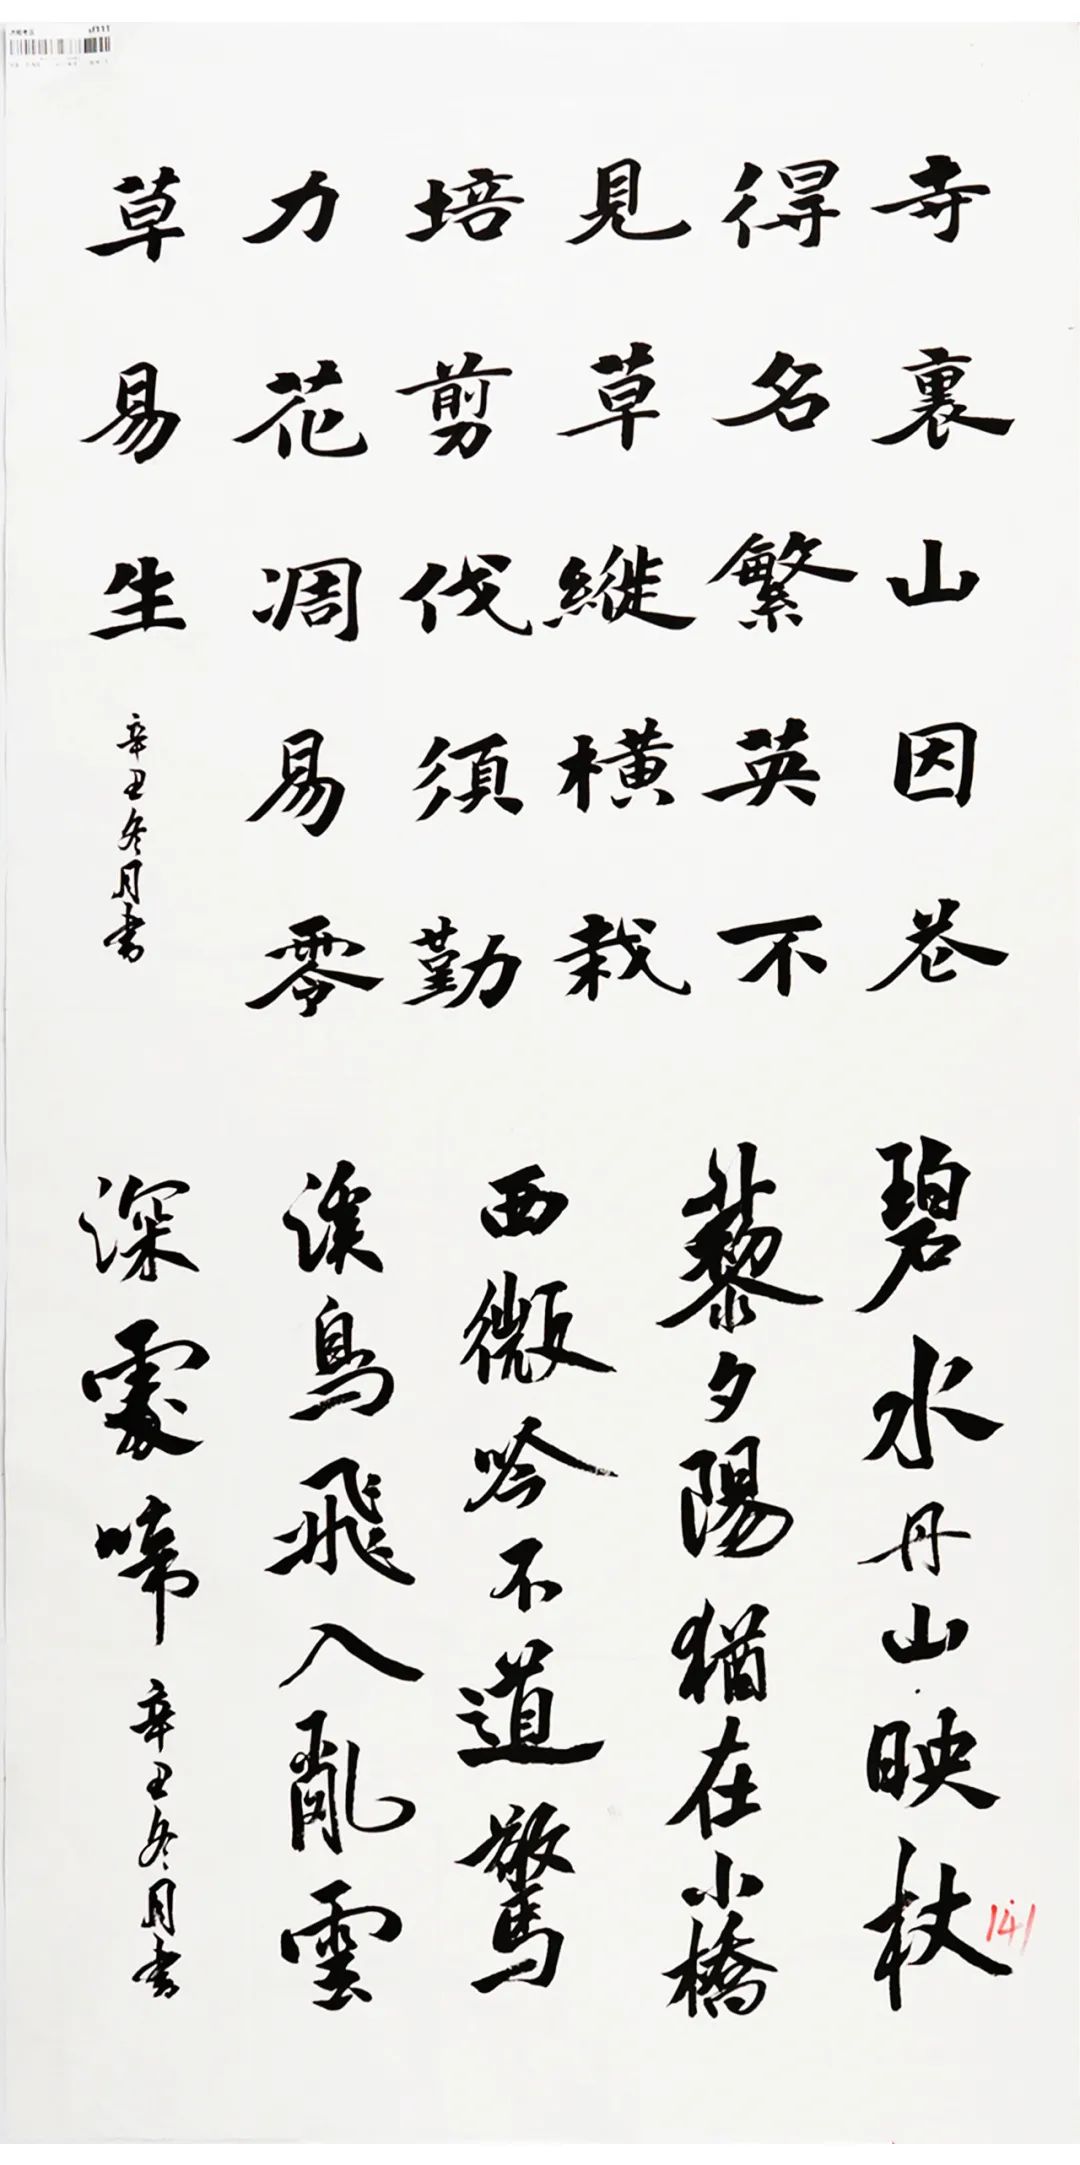 寺裏山因花
得名繁英不
見草縱橫栽
培剪伐須勤
力花凋易零
草易生
辛丑冬月書
碧水丹山映杖
藜夕陽猶在小橋
西微吟不道驚
溪鳥飛入亂雲
深處啼
辛丑冬月書
141